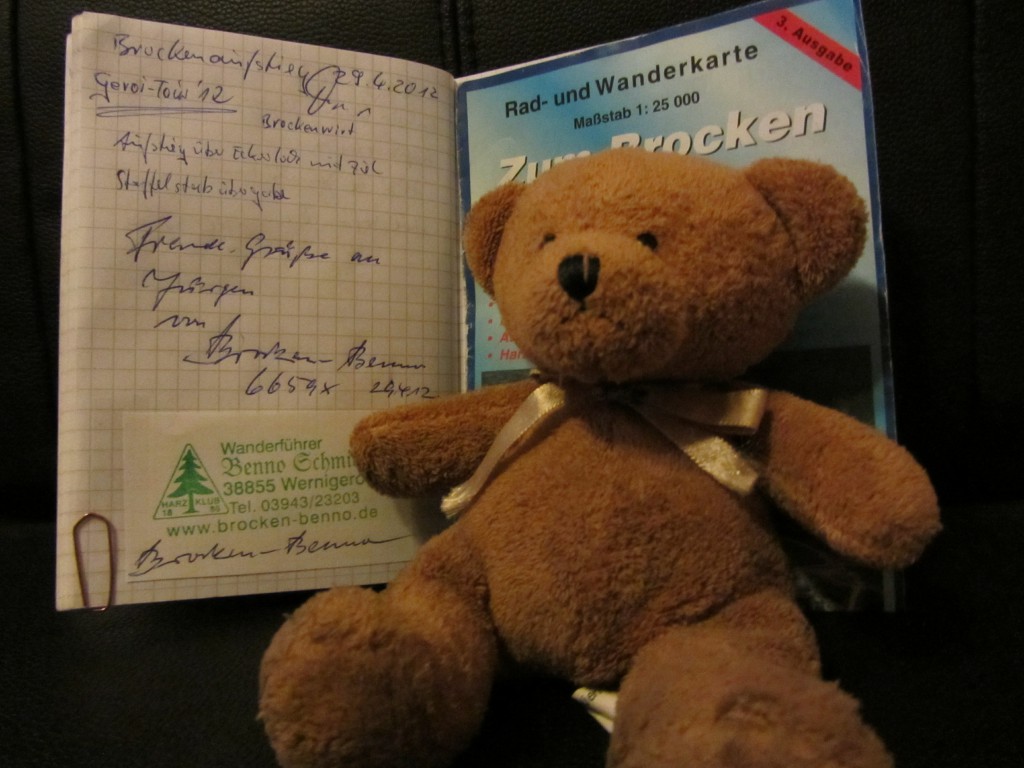 Brockenaufstieg 29.4.2012
Geroi-Tour '12
Brockenwirt
Aufstieg über Eckerloch mit
Staffelstabübergabe
Freundl. Grüße an
Jürgen
von
Brocken-Benno
6659x 29412
Wanderführer
Benno Schmi
38855 Wernigero
HARZ KLUB
18
Tel. 03943/23203
www.brocken-benno.de
Brocken-Benno
3. Ausgabe
Rad- und Wanderkarte
Maßstab 1: 25 000
Zum Brocken